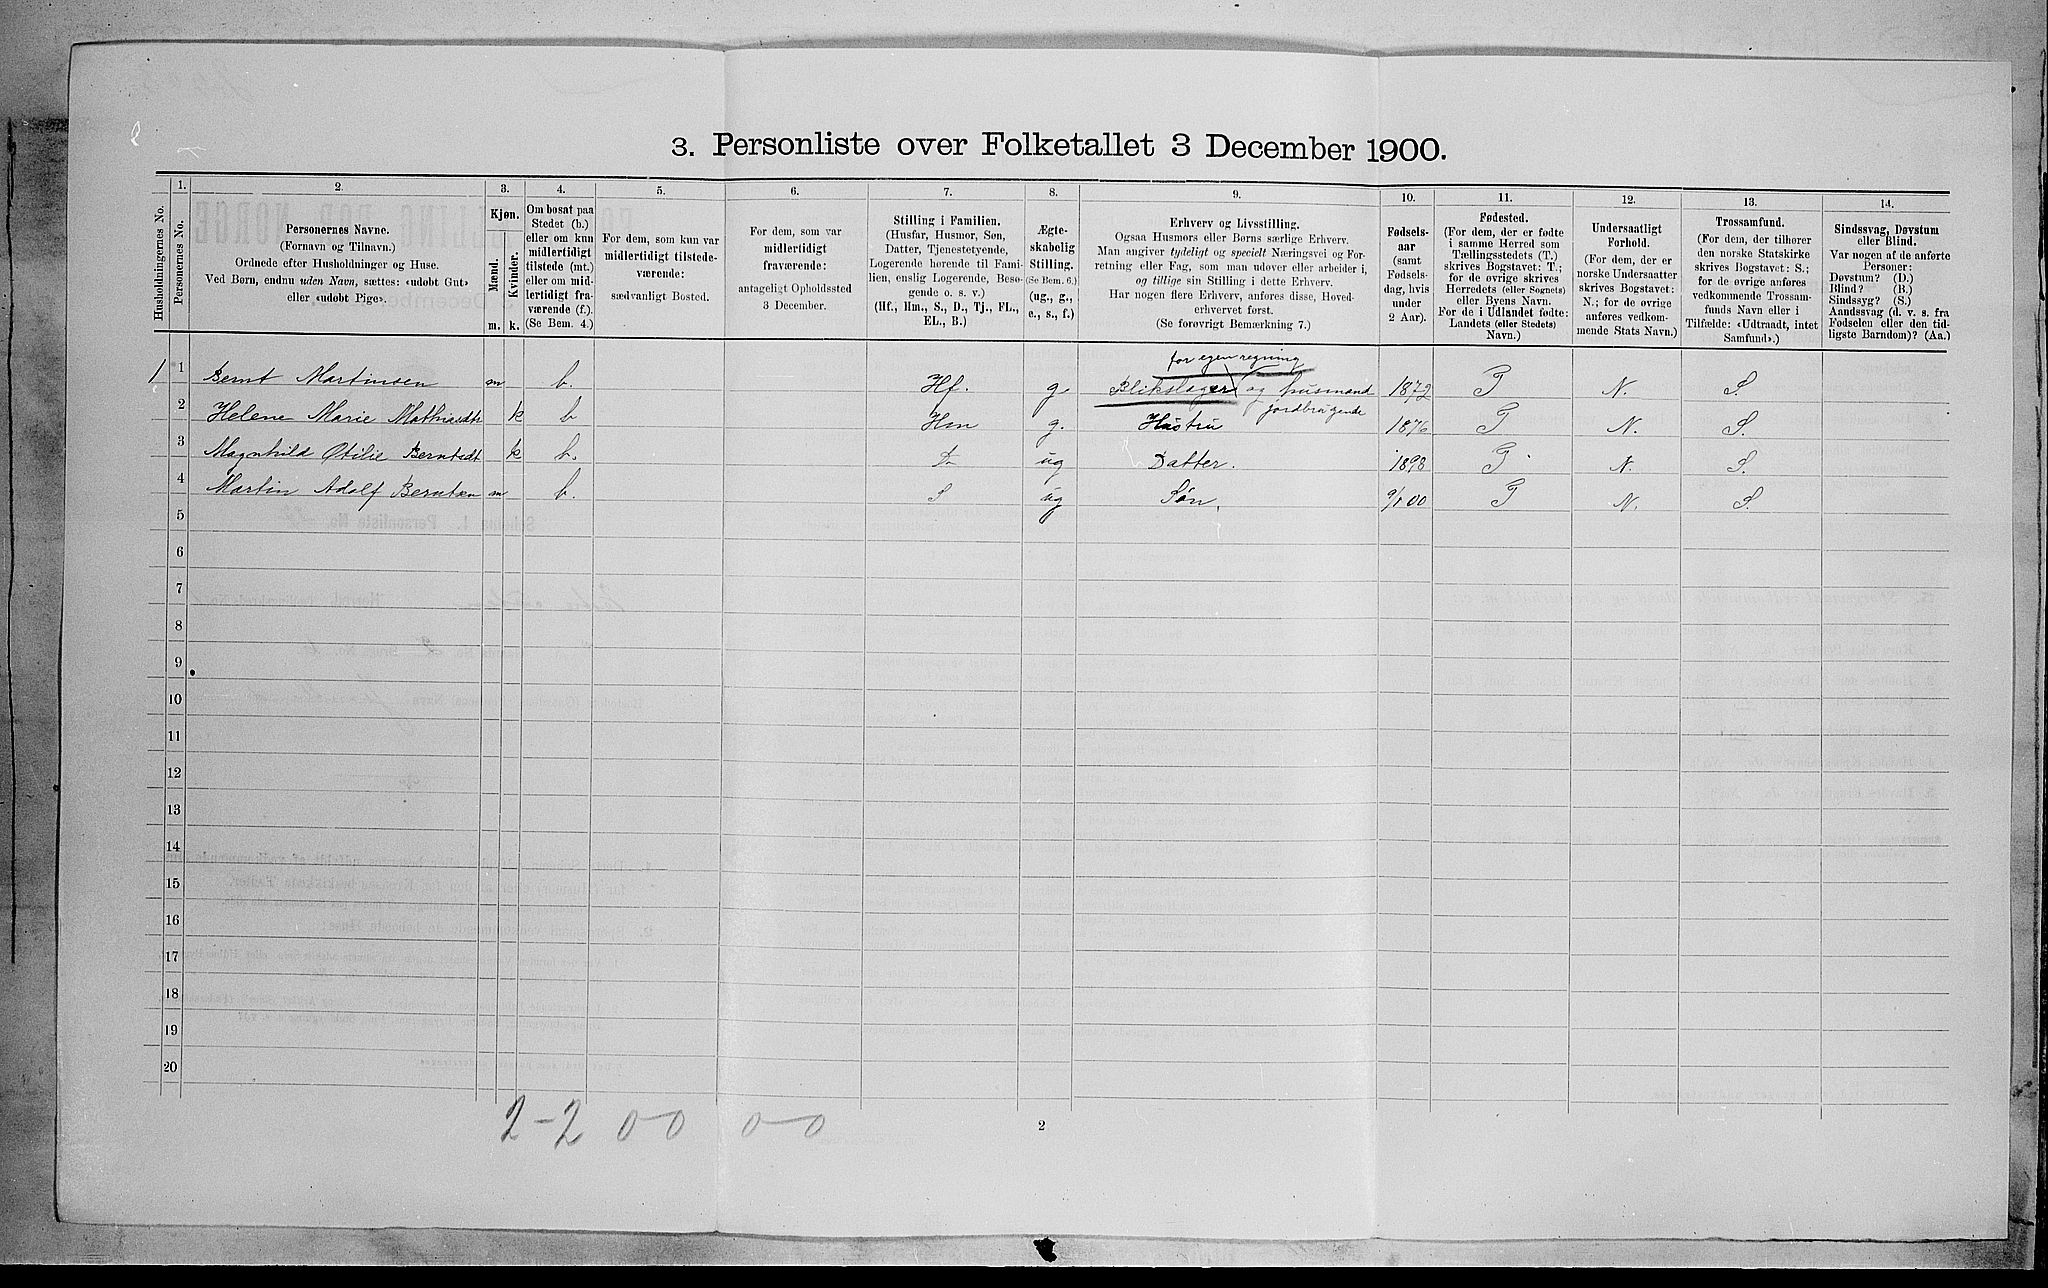 3. Personliste over Folketallet 3 December 1900.
1. 2. 3. 4. 5. 6. 7. 8. 9. 10. 11. 12. 13. 14.
Husholdningernes No.
Personernes No.
Personernes Navne.
(Fornavn og Tilnavn.)
Ordnede efter Husholdninger og Huse.
Ved Børn, endnu uden Navn, sættes: «udøbt Gut»
eller «udøbt Pige».
Kjøn.
Mænd.
Kvinder.
m. k.
Om bosat paa
Stedet (b.)
eller om kun
midlertidigt
tilstede (mt.)
eller om mid-
lertidigt fra-
værende (f.).
(Se Bem. 4.)
For dem, som kun var
midlertidigt tilstede-
værende:
sædvanligt Bosted.
For dem, som var
midlertidigt
fraværende:
antageligt Opholdssted
3 December.
Stilling i Familien.
(Husfar, Husmor, Søn,
Datter, Tjenestetyende,
Logerende hørende til Fami-
lien, enslig Logerende, Besø-
gende o. s. v.)
(Hf., Hm., S., D., Tj., FL.,
EL., B.)
Ægte-
skabelig
Stilling.
(Se Bem. 6.)
(ug., g.,
e., s., f.)
Erhverv og Livsstilling.
Ogsaa Husmors eller Børns særlige Erhverv.
Man angiver tydeligt og specielt Næringsvei og For-
retning eller Fag, som man udøver eller arbeider i,
og tillige sin Stilling i dette Erhverv.
Har nogen flere Erhverv, anføres disse, Hoved-
erhvervet først.
(Se forøvrigt Bemærkning 7.)
Fødsels-
aar
(samt
Fødsels-
dag, hvis
under
2 Aar).
Fødested.
(For dem, der er fødte
i samme Herred som
Tællingsstedets (T.)
skrives Bogstavet: T.;
for de øvrige skrives
Herredets (eller Sognets)
eller Byens Navn.
For de i Udlandet fødte:
Landets (eller Stedets)
Navn.)
Undersaatligt
Forhold.
(For dem, der er
norske Undersaatter
skrives Bogstavet:
N.; for de øvrige
anføres vedkom-
mende Stats Navn.)
Trossamfund.
(For dem, der tilhører
den norske Statskirke
skrives Bogstavet: S.;
for de øvrige anføres
vedkommende Trossam-
funds Navn eller i
Tilfælde: «Udtraadt, intet
Samfund».)
Sindssvag, Døvstum
eller Blind.
Var nogen af de anførte
Personer:
Døvstum? (D.)
Blind? (B.)
Sindssyg? (S.)
Aandssvag (d. v. s. fra
Fødselen eller den tid-
ligste Barndom)? (Aa.)
for egen regning
1 1 Bernt Martinsen m b. Hf. g Blikslager og husmand 1872 T N. S.
jordbrugende
2 Helene Marie Mathiasdtr k b Hm g. Hustru 1876 T N. S.
3 Magnhild Otilie Berntsdt k b. D ug Datter. 1898 T N. S.
4 Martin Adolf Berntsen m b. S ug Søn. 9/1 00 T N. S.
5
6
7
8
9
10
11
12
13
14
15
16
17
18
19
20
2-2 0-0 0-0
2